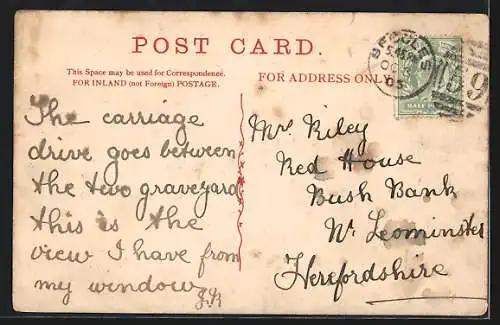 POST CARD.
This Space may be used for Correspondence.
FOR INLAND (not Foreign) POSTAGE.
The carriage
drive goes between
the two graveyard
this is the
view I have from
my window
FOR ADDRESS ONLY
Mrs Riley
Red House
Bush Bank
Nr Leominster
Herefordshire
BECCLES
HALF P